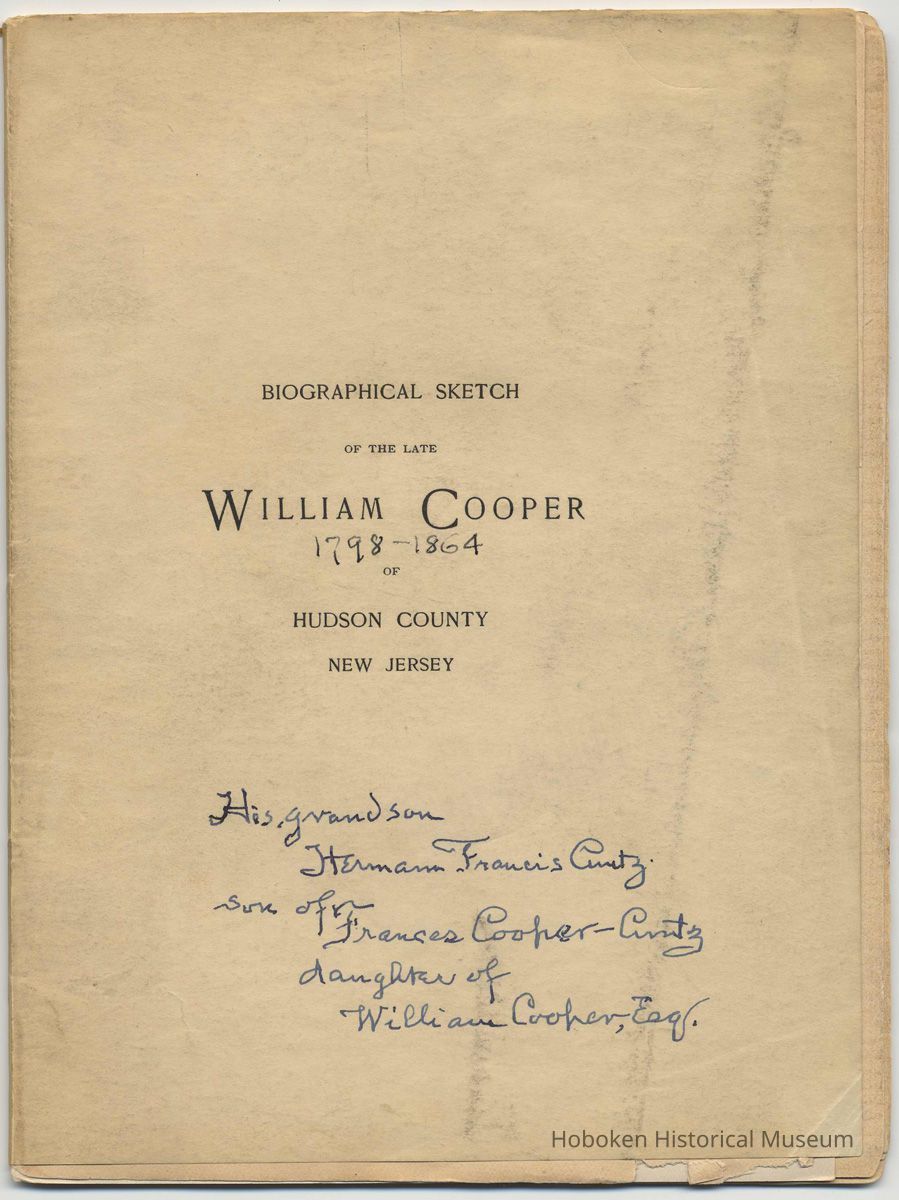 BIOGRAPHICAL SKETCH
OF THE LATE
WILLIAM COOPER
1798-1864
OF
HUDSON COUNTY
NEW JERSEY
His grandson
Hermann Francis Cuntz
son of
Frances Cooper-Cuntz
daughter of
William Cooper, Esq.
Hoboken Historical Museum